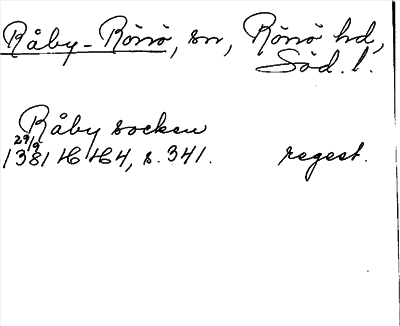 Råby-Rönö, sn, Rönö hd,
Söd. l.
Råby socken
29/9
1381 HH4, s. 341. regest.